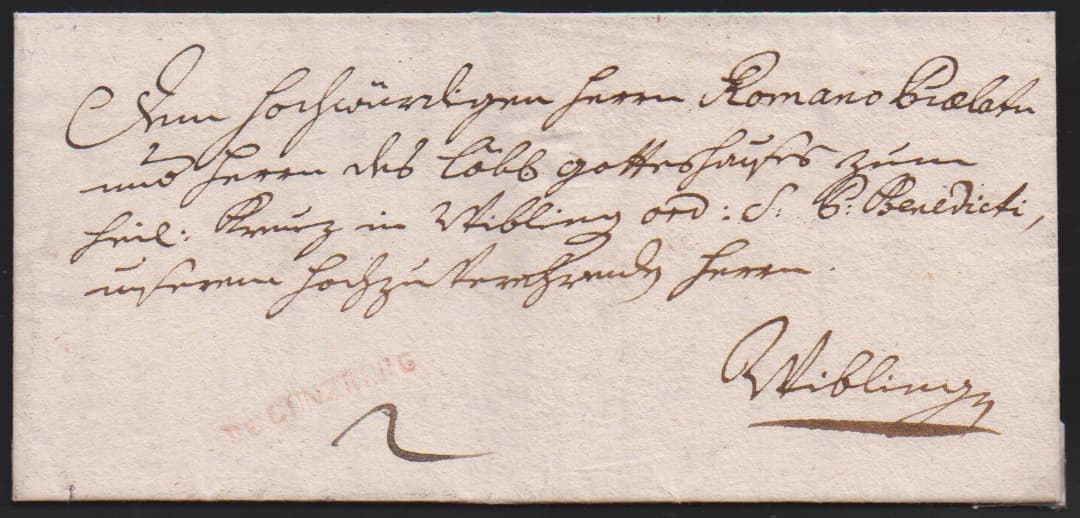 Dem Hochwürdigen Herrn Romano Prælatn
und Herrn des Löbl Gotteshauses zum
Heil: Kreuz in Wibling ord: S: P: Benedicti,
unserem Hochzuverehrenden Herrn.
Wiblingen
DE GUNZBURG
2